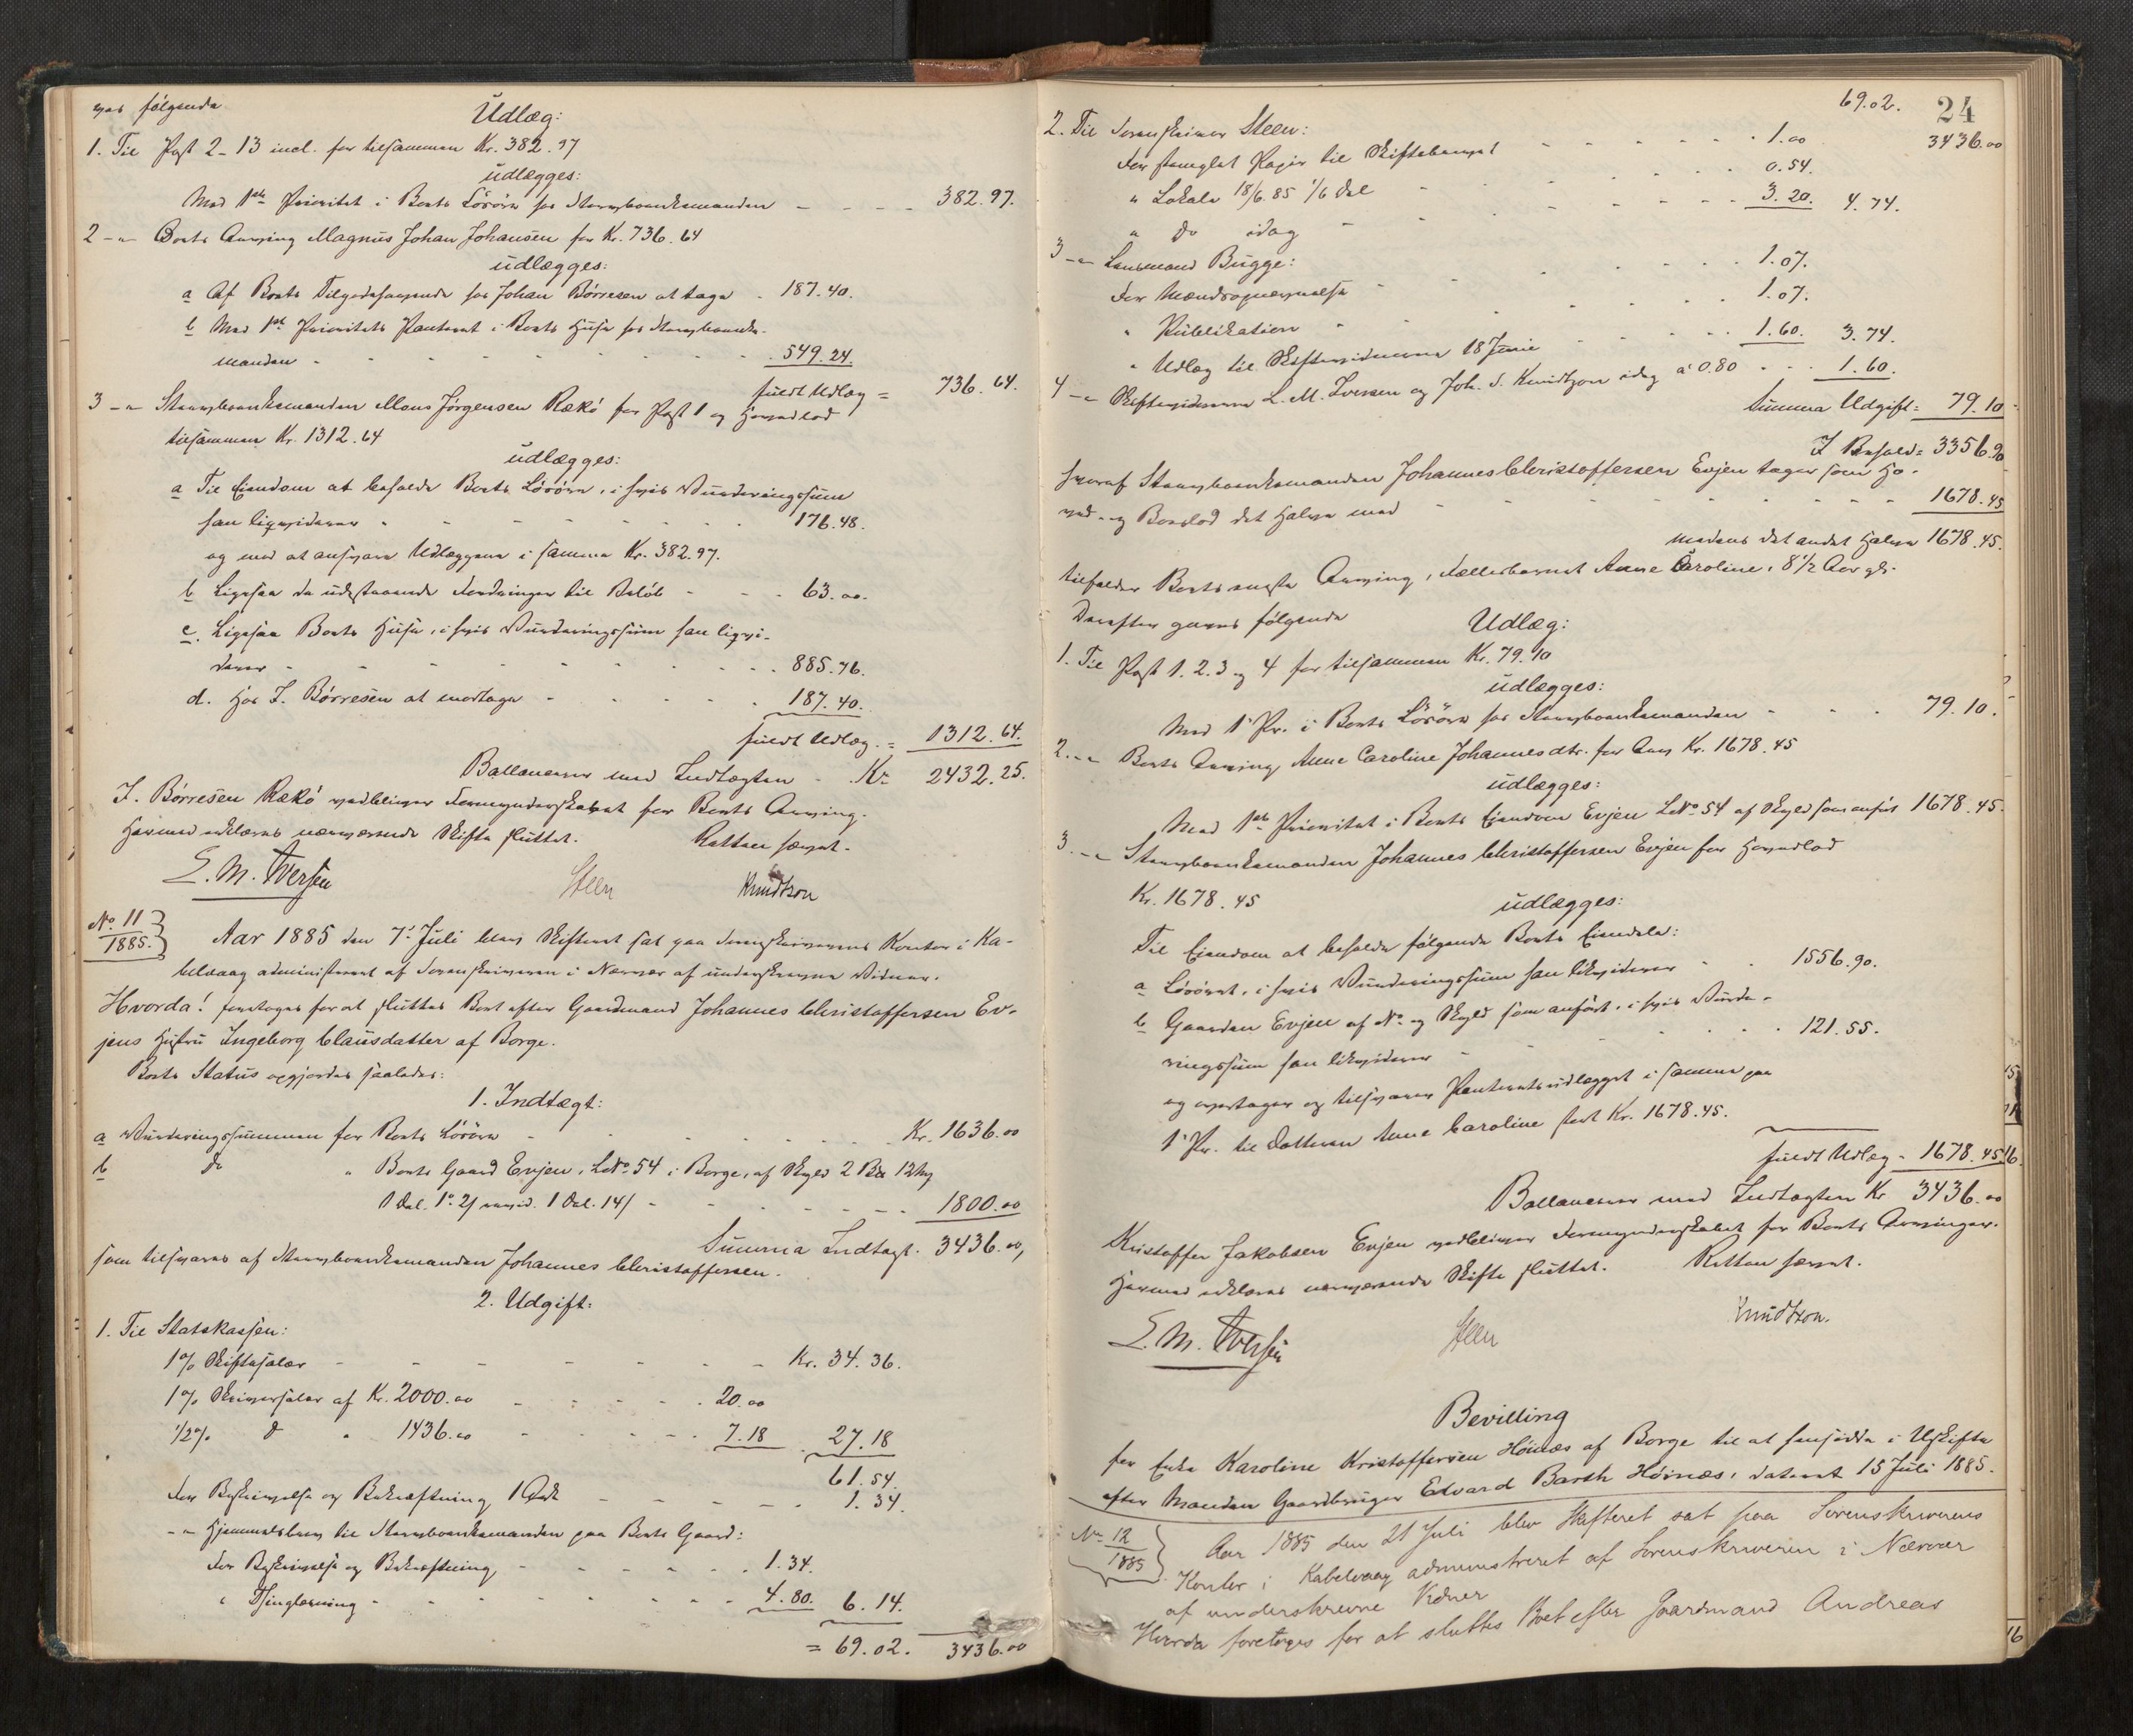 gaves følgende
Udlæg:
1. Til Post 2-13 incl. for tilsammen Kr. 382.97
udlægges:
Med 1ste Prioritet i Boets Løsøre hos Stervboenkemanden - - - 382.97.
2 -"- Boets Arving Magnus Johan Johansen for Kr. 736.64
udlægges:
a Af Boets Tilgodehavende hos Johan Børresen at tage - 187.40.
b Med 1ste Prioritets Panteret i Boets Huse hos Stervboenke-
manden - - - 549.24.
fuldt Udlæg = 736.64.
3 -"- Stervboenkemanden Mons Jørgensen Rækø for Post 1 og Hovedlod
tilsammen Kr. 1312.64
udlægges:
a Til Eiendom at beholde Boets Løsøre, i hvis Vurderingssum
han liqviderer - - - 176.48.
og med at ansvare Udlæggene i samme Kr. 382.97.
b Ligesaa de udestaaende Fordringer til Beløb - - - 63.00.
c. Ligesaa Boets Huse, i hvis Vurderingssum han liqvi-
derer - - - 885.76.
d. Hos J. Børresen at modtage - - - 187.40.
fuldt Udlæg. = 1312.64.
Ballancerer med Indtægten - Kr 2432.25.
J. Børresen Rækø vedbliver Formynderskabet for Boets Arving.
Hermed erklæres nærværende Skifte sluttet. Retten hævet.
E. M. Iversen Steen Knudtzon
No. 11
1885.
Aar 1885 den 7de Juli blev Skifteret sat paa Sorenskriverens Kontor i Ka-
belvaag administreret af Sorenskriveren i Nærvær af underskrevne Vidner.
Hvorda! foretoges for at sluttes Boet efter Gaardmand Johannes Christoffersen Ev-
jens Hustru Ingeborg Clausdatter af Borge.
Boets Status opgjordes saaledes:
1. Indtægt:
a Vurderingssummen for Boets Løsøre - - - Kr. 1636.00
b do " Boets Gaard Evjen, LNo. 54 i Borge, af Skyld 2 Bn 12
1 Dal. 1. 2/ revid. 1 Dal. 14/ - - - 1800.00
Summa Indtægt. 3436.00,
som tilsvares af Stervboenkemanden Johannes Christoffersen.
2. Udgift:
1. Til Statskassen:
1% Skiftesalær - - - Kr. 34.36.
1% Skriversalær af Kr. 2000.00 - - - 20.00
1/2% do " 1436.00 - - - 7.18 27.18
61.54.
For Beskrivelse og Bekræftning 1 - - - 1.34.
-"- Hjemmelsbrev til Stervboenkemanden paa Boets Gaard:
For Beskrivelse og Bekræftning - - - 1.34.
" Thinglæsning - - - 4.80. 6.14.
= 69.02. 3436.00
69.02. 24
3436.00
2. Til Sorenskriver Steen:
For stemplet Papir til Skiftebrevet - - - 1.00
" Lokale 18/6.85 1/6 Del - - - 0.54.
" do idag - - - 3.20. 4.74.
3 -"- Lensmand Bugge:
For Mændsopnævnelse - - - 1.07.
" Publikation - - - 1.07.
" Udlæg til Skiftevidnerne 18 Juni - - - 1.60. 3.74.
4 -"- Skiftevidnerne L. M. Iversen og Joh. S. Knudtzon idag a 0.80 - - - 1.60.
Summa Udgift: 79.10
I Behold: 3356.90
hvoraf Stervboenkemanden Johannes Christoffersen Evjen tager som Ho-
ved- og Boeslod det Halve med - - - 1678.45
medens det andet Halve 1678.45.
tilfalder Boets eneste Arving, Fællesbarnet Anne Caroline, 8 1/2 Aar gl.
Derefter gaves følgende
Udlæg:
1. Til Post 1. 2. 3 og 4 for tilsammen Kr. 79.10
udlægges:
Med 1' Pr. i Boets Løsøre hos Stervboenkemanden - - - 79.10.
2. -"- Boets Arving Anne Caroline Johannesdtr. for Arv Kr. 1678.45
udlægges:
Med 1ste Prioritet i Boets Eiendom Evjen LNo. 54 af Skyld som anført 1678.45.
3. -"- Stervboenkemanden Johannes Christoffersen Evjen for Hovedlod
Kr. 1678.45
udlægges:
Til Eiendom at beholde følgende Boets Eiendele:
a Løsøret, i hvis Vurderingssum han likviderer - - 1556.90.
b Gaarden Evjen af No. og Skyld som anført, i hvis Vurde-
ringssum han likviderer - - - 121.55.
og overtager og tilsvarer Panteretsudlægget i samme paa
1' Pr. til Datteren Anne Caroline stort Kr. 1678.45.
fuldt Udlæg - 1678.45
Ballancerer med Indtægten Kr 3436.00
Kristoffer Jakobsen Evjen vedbliver Formynderskabet for Boets Arvinger.
Hermed erklæres nærværende Skifte sluttet. Retten hævet.
E. M. Iversen Steen Knudtzon.
Bevilling
for Enke Karoline Kristoffersen Høinæs af Borge til at hensidde i Uskifte
efter Manden Gaardbruger Edvard Barth Høinæs, dateret 15 Juli 1885.
No. 12
1885
Aar 1885 den 21 Juli blev Skifteret sat paa Sorenskriverens
Kontor i Kabelvaag administreret af Sorenskriveren i Nærvær
af underskrevne Vidner
Hvorda foretoges for at sluttes Boet efter Gaardmand Andreas